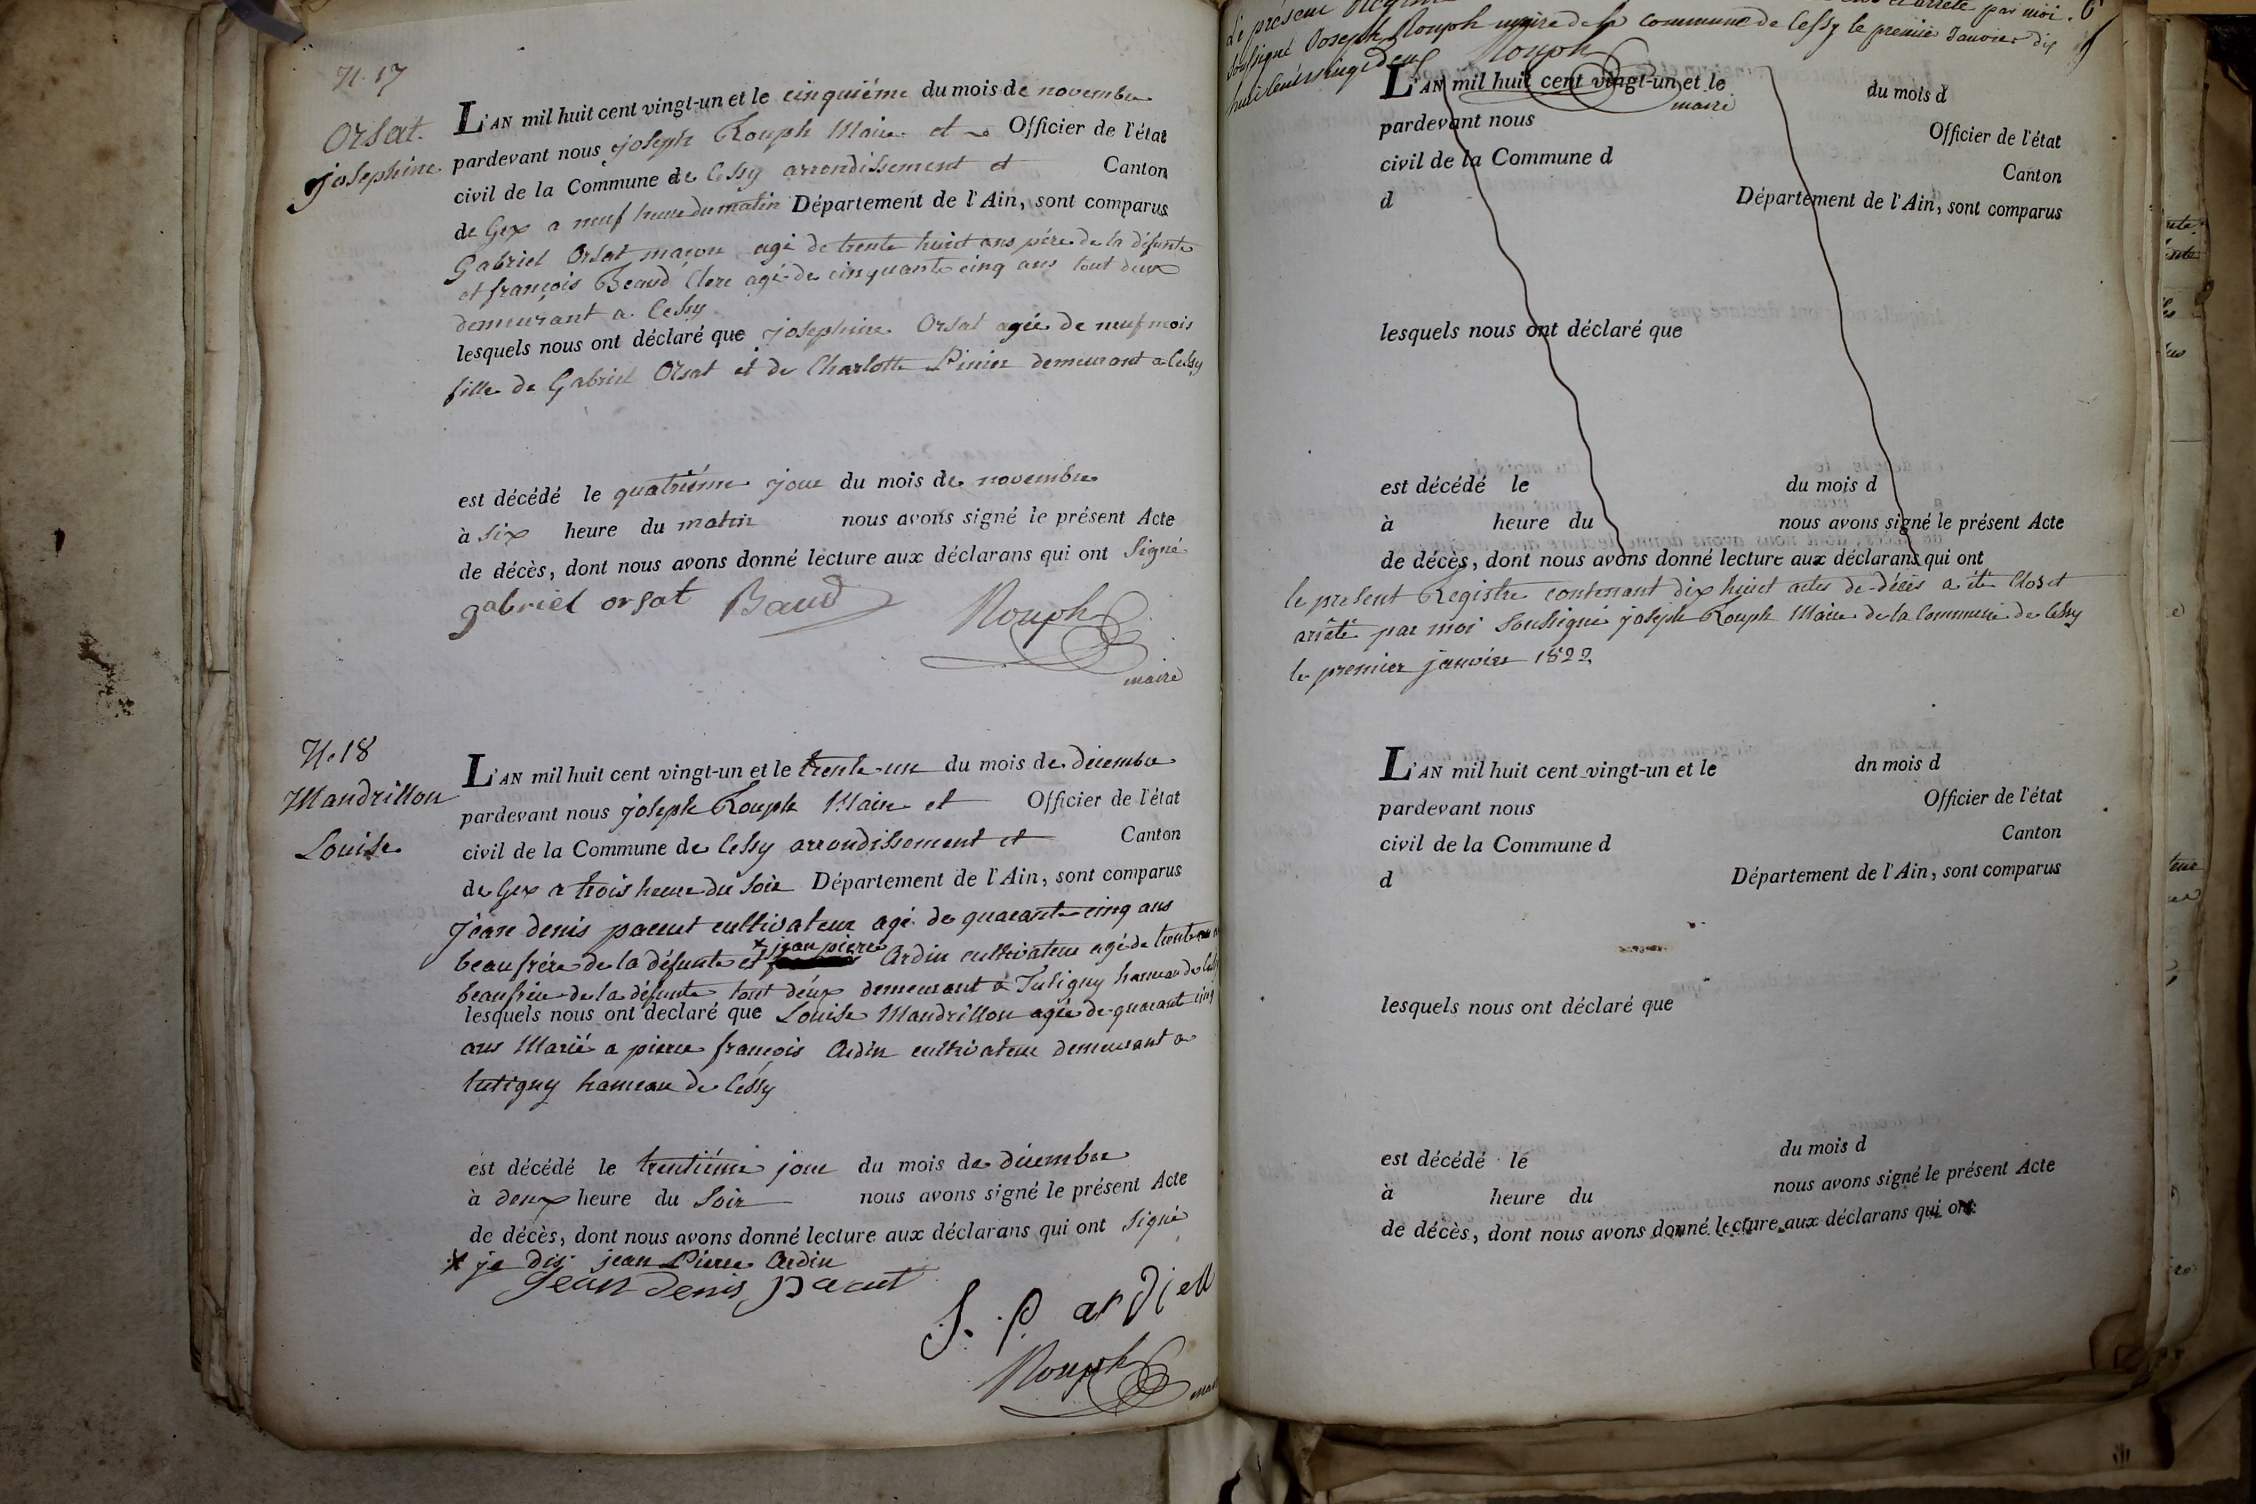 N. 17
Orsat.
josephine
L'AN mil huit cent vingt-un et le cinquiéme du mois de novembre
pardevant nous joseph Rouph Maire et Officier de l'état
civil de la Commune de Cessy arrondissement et Canton
de Gex a neuf heure du matin Département de l'Ain, sont comparus
Gabriel Orsat maçon agé de trente huit ans père de la défunte
et françois Beaud Clerc agé de cinquante cinq ans tout deux
demeurant a Cessy
lesquels nous ont déclaré que josephine Orsat agée de neuf mois
fille de Gabriel Orsat et de Charlotte Pinier demeurant a Cessy
est décédé le quatriéme jour du mois de novembre
à six heure du matin nous avons signé le présent Acte
de décès, dont nous avons donné lecture aux déclarans qui ont Signé
gabriel orsat Baud Rouph
maire
N. 18
Mandrillon
Louise
L'AN mil huit cent vingt-un et le trente-un du mois de décembre
pardevant nous joseph Rouph Maire et Officier de l'état
civil de la Commune de Cessy arrondissement et Canton
de Gex a trois heure du Soir Département de l'Ain, sont comparus
jean denis pacaut cultivateur agé de quarante cinq ans
beaufrére de la défunte et * jean pierre Ardin cultivateur agé de trente
beaufrere de la défunte tout deux demeurant a Tutigny hameau de
lesquels nous ont déclaré que Louise Mandrillon agée de quarant cinq
ans Marié a pierre françois Ardin cultivateur demeurant a
tutigny hameau de Céssy
est décédé le trentiéme jour du mois de décembre
à deux heure du Soir nous avons signé le présent Acte
de décès, dont nous avons donné lecture aux déclarans qui ont Signé
* je dis jean Pierre Ardin
jean denis
J. P. ardin
Rouph
Le présent et arrété par moi. 6
soussigné Joseph Rouph maire de la commune de Cessy le premier Janvier dix
huit cent vingt deux Rouph
maire
L'AN mil huit cent vingt-un et le du mois d
pardevant nous Officier de l'état
civil de la Commune d Canton
d Département de l'Ain, sont comparus
lesquels nous ont déclaré que
est décédé le du mois d
à heure du nous avons signé le présent Acte
de décès, dont nous avons donné lecture aux déclarans qui ont
le present Registre contenant dix huit actes de décès a été Clos et
arrêté par moi Soussigné joseph Rouph Maire de la Commune de Cessy
le premier janvier 1822
L'AN mil huit cent vingt-un et le dn mois d
pardevant nous Officier de l'état
civil de la Commune d Canton
d Département de l'Ain, sont comparus
lesquels nous ont déclaré que
est décédé le du mois d
à heure du nous avons signé le présent Acte
de décès, dont nous avons donné lecture aux déclarans qui ont